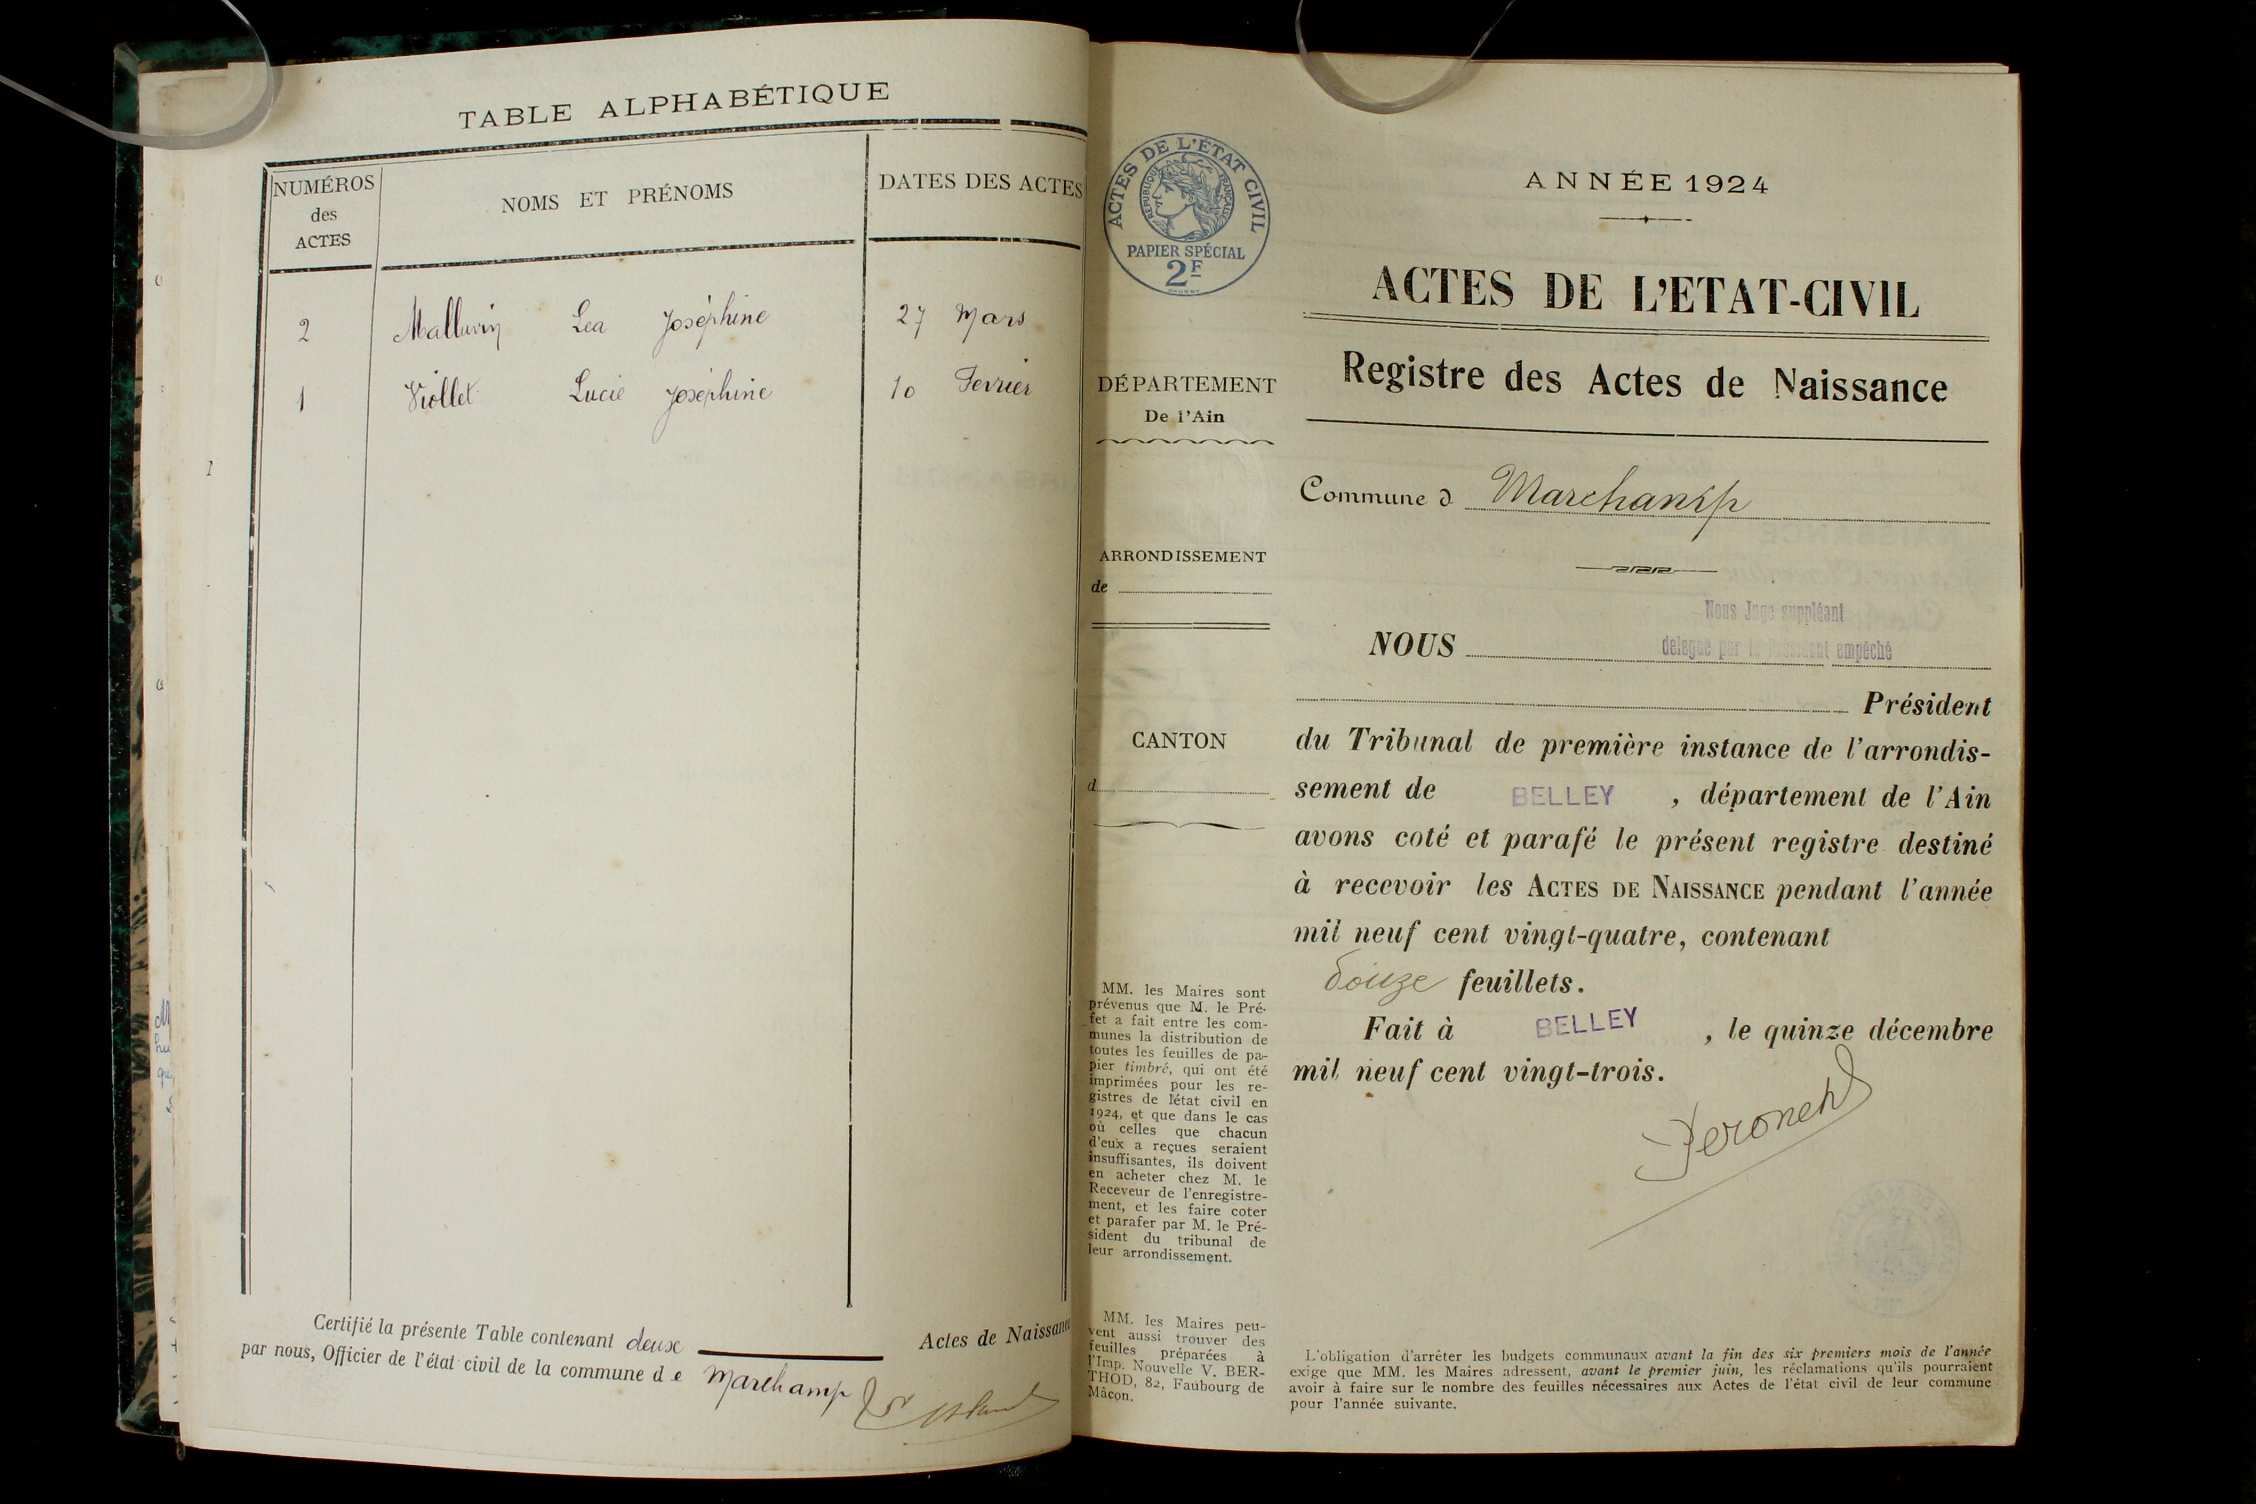 TABLE ALPHABÉTIQUE
NUMÉROS
des
ACTES
NOMS ET PRÉNOMS
DATES DES ACTES
2 Malluvin Lea Joséphine 27 Mars
1 Viollet Lucie Joséphine 10 Fevrier
Certifié la présente Table contenant deux Actes de Naissance
par nous, Officier de l'état civil de la commune de Marchamp
ACTES DE L'ÉTAT CIVIL
RÉPUBLIQUE FRANÇAISE
PAPIER SPÉCIAL
2F
DÉPARTEMENT
De l'Ain
ARRONDISSEMENT
de
CANTON
d
MM. les Maires sont
prévenus que M. le Pré-
fet a fait entre les com-
munes la distribution de
toutes les feuilles de pa-
pier timbré, qui ont été
imprimées pour les re-
gistres de l'état civil en
1924, et que dans le cas
où celles que chacun
d'eux a reçues seraient
insuffisantes, ils doivent
en acheter chez M. le
Receveur de l'enregistre-
ment, et les faire coter
et parafer par M. le Pré-
sident du tribunal de
leur arrondissement.
MM. les Maires peu-
vent aussi trouver des
feuilles préparées à
l'Imp. Nouvelle V. BER-
THOD, 82, Faubourg de
Mâcon.
ANNÉE 1924
ACTES DE L'ETAT-CIVIL
Registre des Actes de Naissance
Commune d Marchamp
Nous Juge suppléant
NOUS délégué par le Président empêché
Président
du Tribunal de première instance de l'arrondis-
sement de BELLEY, département de l'Ain
avons coté et parafé le présent registre destiné
à recevoir les ACTES DE NAISSANCE pendant l'année
mil neuf cent vingt-quatre, contenant
douze feuillets.
Fait à BELLEY, le quinze décembre
mil neuf cent vingt-trois.
L'obligation d'arrêter les budgets communaux avant la fin des six premiers mois de l'année
exige que MM. les Maires adressent, avant le premier juin, les réclamations qu'ils pourraient
avoir à faire sur le nombre des feuilles nécessaires aux Actes de l'état civil de leur commune
pour l'année suivante.